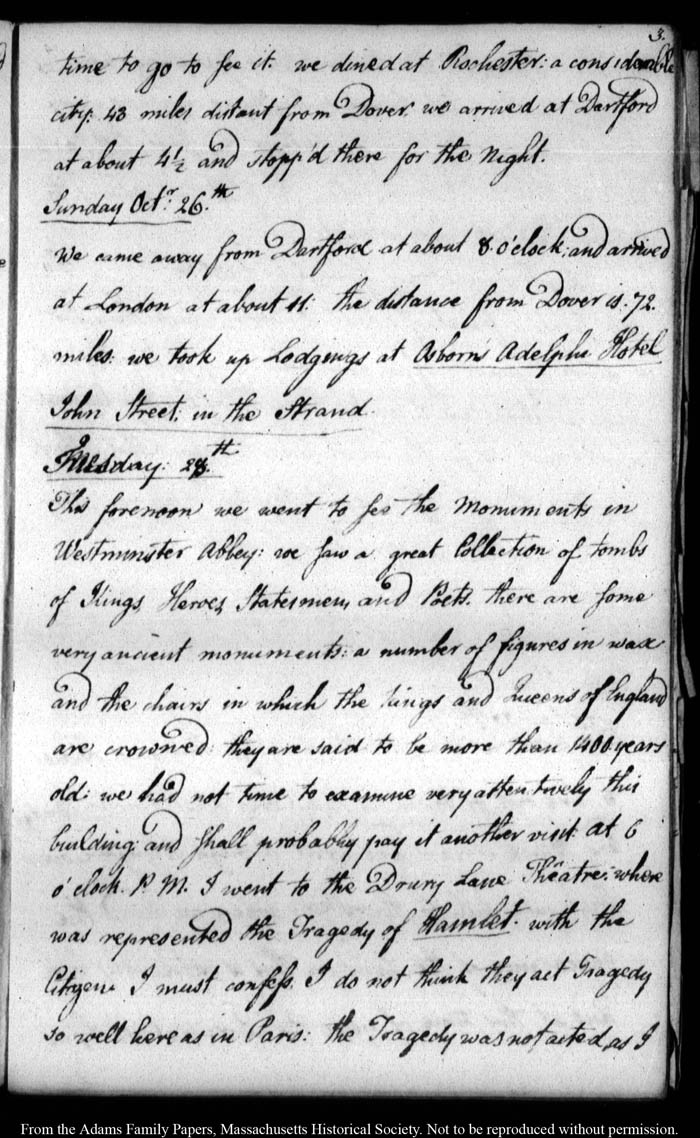 3.
time to go to see it. we dined at Rochester: a considerable
city: 43 miles distant from Dover. we arrived at Dartford
at about 4½ and stopp'd there for the Night.
Sunday Octr. 26.th
We came away from Dartford at about 8 o'clock; and arrived
at London at about 11: the distance from Dover is. 72.
miles: we took up Lodgings at Osborn's Adelphi Hotel
John Street, in the Strand.
Tuesday: 28.th
This forenoon we went to see the Monuments in
Westminster Abbey: we saw a great Collection of tombs
of Kings, Heroes, Statesmen, and Poets. there are some
very ancient monuments: a number of figures in wax
and the chairs in which the Kings and Queens of England
are crowned: they are said to be more than 1400 years
old: we had not time to examine very attentively this
building: and shall probably pay it another visit. at 6
o'clock. P.M. I went to the Drury Lane Théatre: where
was represented the Tragedy of Hamlet. with the
Citizen I must confess. I do not think they act Tragedy
so well here as in Paris: the Tragedy was not acted, as I
From the Adams Family Papers, Massachusetts Historical Society. Not to be reproduced without permission.